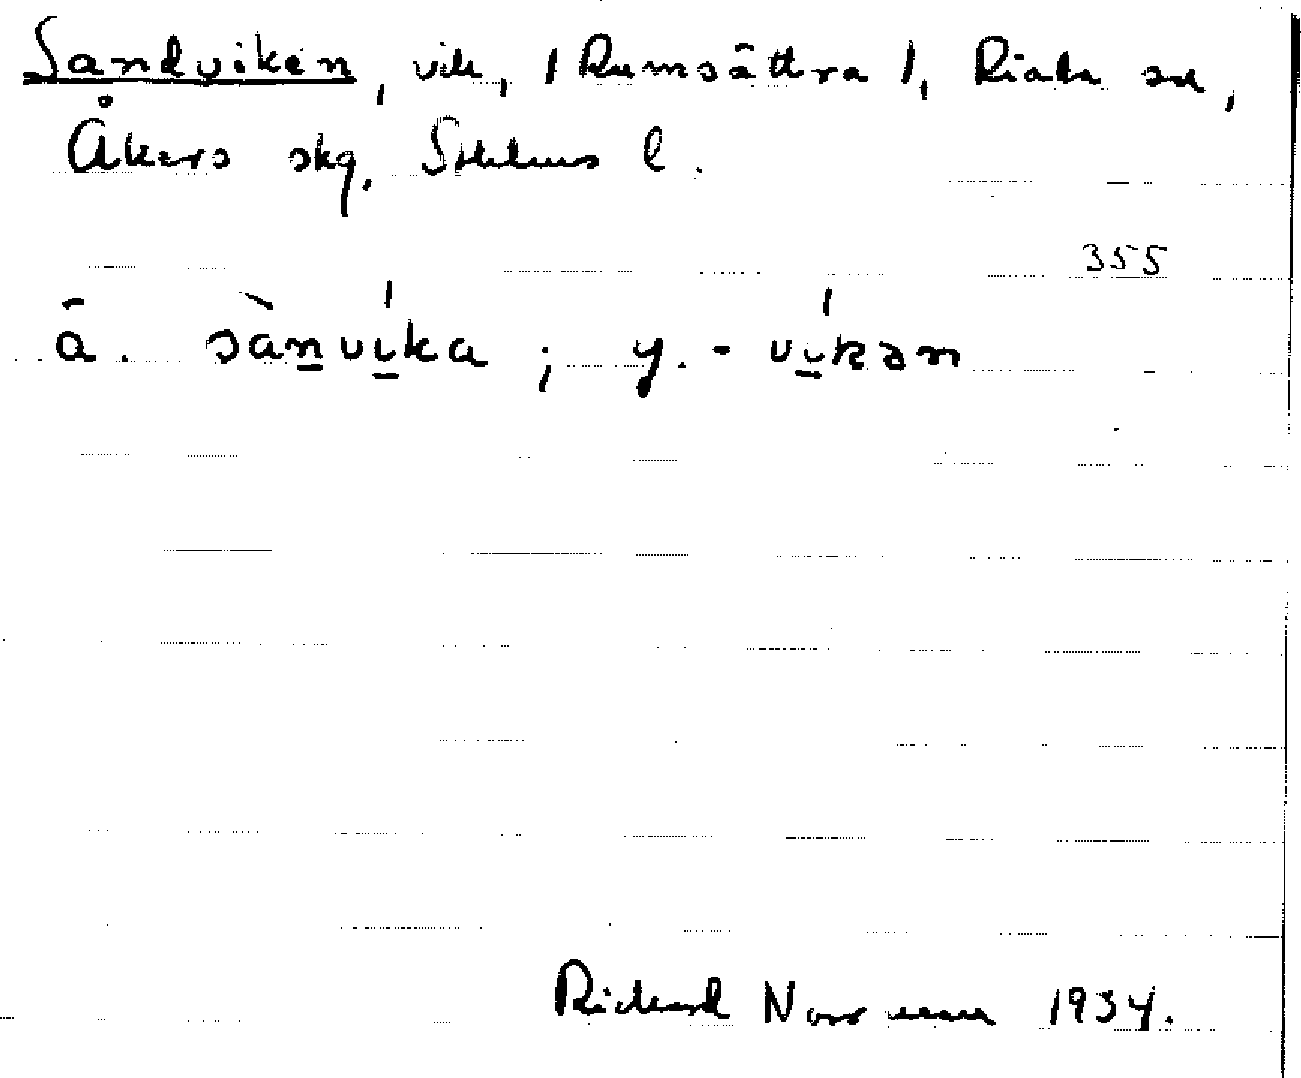 Sandviken, vik, / Rumsättra /, Riala sn,
Åkers skg, Sthlms l.
355
ä. sànvíka ; y. - víkən
Rickard Norrman 1934.